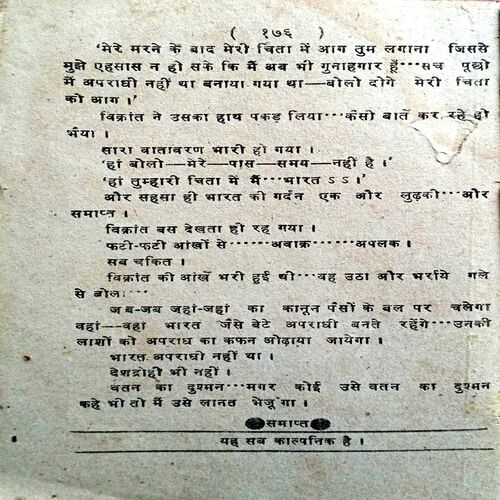 ( १७६ )
'मेरे मरने के बाद मेरी चिता में आग तुम लगाना जिससे
मुझे एहसास न हो सके कि मैं अब भी गुनाहगार हूँ···सच पूछो
मैं अपराधी नहीं था बनाया गया था—बोलो दोगे मेरी चिता
को आग।'
विक्रांत ने उसका हाथ पकड़ लिया···कैसी बातें कर रहे हो
भैया।
सारा वातावरण भारी हो गया।
'हां बोलो—मेरे—पास—समय—नहीं है।'
'हां तुम्हारी चिता में मैं···भारत ऽ ऽ।'
और सहसा ही भारत की गर्दन एक और लुढ़की···और
समाप्त।
विक्रांत बस देखता ही रह गया।
फटी-फटी आंखों से······अवाक्र······अपलक।
सब चकित।
विक्रांत की आंखें भरी हुई थी···वह उठा और भर्राये गले
से बोला···
जब-जब जहां-जहां का कानून पैसों के बल पर चलेगा
वहां—वहा भारत जैसे बेटे अपराधी बनते रहेंगे···उनकी
लाशों को अपराध का कफन ओढ़ाया जायेगा।
भारत अपराधी नहीं था।
देशद्रोही भी नहीं।
वतन का दुश्मन···मगर कोई उसे वतन का दुश्मन
कहे भी तो मैं उसे लानत भेजूंगा।
समाप्त
यह सब काल्पनिक है।